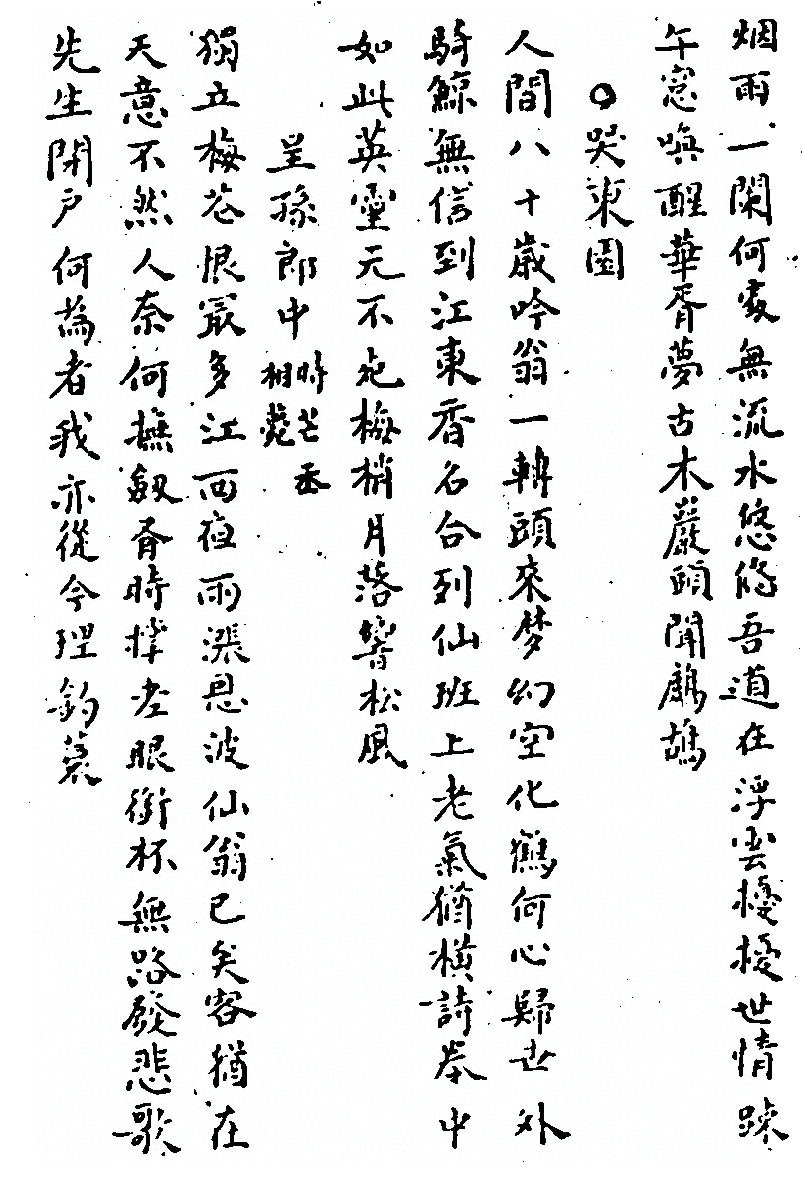 烟雨一闋何處無流水悠悠吾道在浮雲擾擾世情踈
午窓喚醒華胥夢古木巖頭聞鷓鴣
○哭東園
人間八十歲吟翁一轉頭來梦幻空化鶴何心歸世外
騎鯨無信到江東香名合列仙班上老氣猶橫詩卷中
如此英靈元不死梅梢月落響松風
呈孫郎中時芒丞相薨
獨立梅花恨最多江西夜雨漲恩波仙翁已矣客猶在
天意不然人奈何撫劔有時撑老眼銜杯無路發悲歌
先生閉戶何為者我亦從今理釣蓑